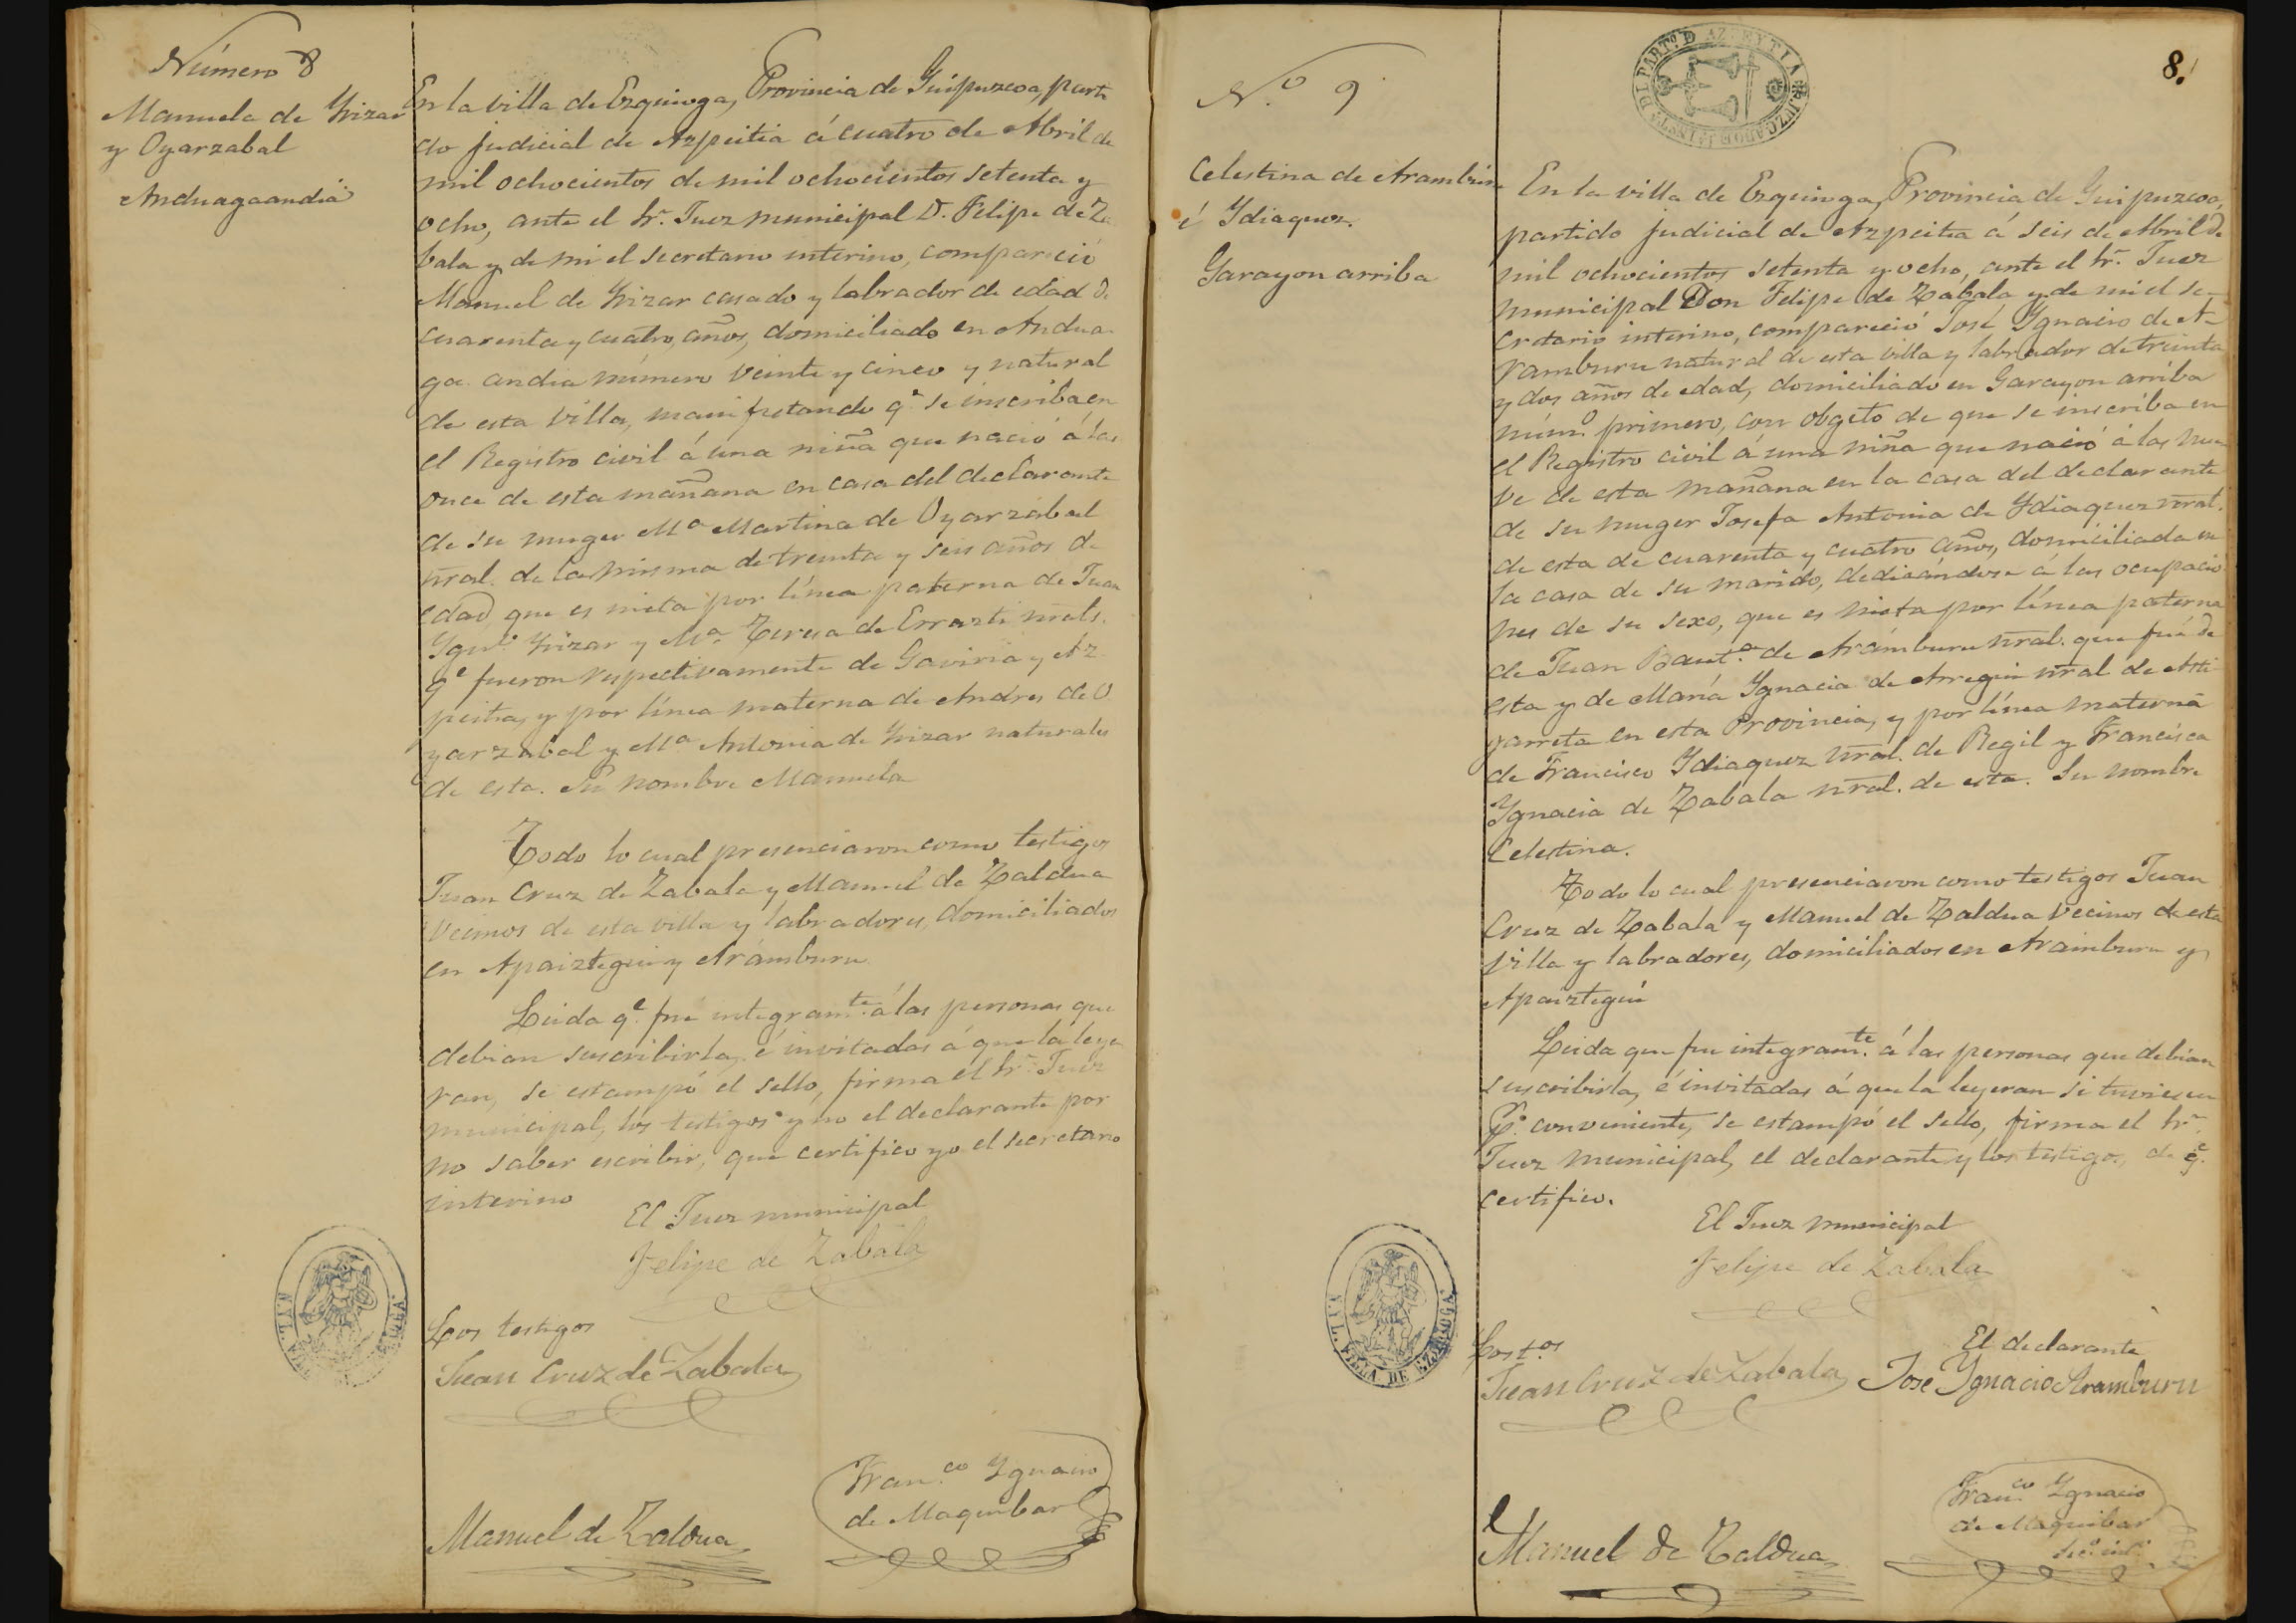 Número 8
Manuela de Yrizar
y Oyarzabal
Anduagaandia
En la villa de Ezquioga, Provincia de Guipuzcoa, parti
do judicial de Azpeitia á cuatro de Abril de
mil ochocientos de mil ochocientos setenta y
ocho, ante el Sr. Juez municipal D. Felipe de Za
bala y de mi el secretario interino, compareció
Manuel de Yrizar casado y labrador de edad de
cuarenta y cuatro, años, domiciliado en Andua
ga andia número veinte y cinco y natural
de esta villa, manifestando qe. se inscriba en
el Registro civil á una niña que nació á las
once de esta mañana en casa del declarante
de su muger Ma. Martina de Oyarzabal
nral. de la misma de treinta y seis años de
edad, que es nieta por línea paterna de Juan
Ygno. Yrizar y Ma. Teresa de Errazti nrals.
qe. fueron respectivamente de Gaviria y Az
peitia, y por línea materna de Andres de O
yarzabal y Ma. Antonia de Yrizar naturales
de esta. Su nombre Manuela
Todo lo cual presenciaron como testigos
Juan Cruz de Zabala y Manuel de Zaldua
vecinos de esta villa y labradores, domiciliados
en Apaiztegui y Arámburu
Leida qe. fue integramte. á las personas que
debian suscribirla, é invitadas á que la leye
ran, se estampó el sello, firma el Sr. Juez
municipal, los testigos y no el declarante por
no saber escribir, que certifico yo el secretario
interino
El Juez municipal
Felipe de Zabala
Los testigos
Juan Cruz de Zabala
Manuel de Zaldua
Franco. Ygnacio
de Maquibar
8.
JUZGADO DE 1ª INSTA. DEL PARTº. D AZPEYTIA
No. 9
Celestina de Aramburu
é Ydiaquez.
Garayon arriba
En la villa de Ezquioga, Provincia de Guipuzcoa,
partido judicial de Azpeitia á seis de Abril de
mil ochocientos setenta y ocho, ante el Sr. Juez
municipal Don Felipe de Zabala y de mi el se-
cretario interino, compareció José Ygnacio de A-
ramburu natural de esta villa y labrador de treinta
y dos años de edad, domiciliado en Garayon arriba
númo. primero, con obgeto de que se inscriba en
el Registro civil á una niña que nació á las nue
ve de esta mañana en la casa del declarante
de su muger Josefa Antonia de Ydiaquez nral.
de esta de cuarenta y cuatro años, domiciliada en
la casa de su marido, dedicándose á las ocupacio
nes de su sexo, que es nieta por línea paterna
de Juan Bauta. de Arámburu nral. que fué de
esta y de María Ygnacia de Arregui nral de Asti
garreta en esta Provincia, y por línea materna
de Francisco Ydiaquez nral. de Regil y Francisca
Ygnacia de Zabala nral. de esta. Su nombre
Celestina.
Todo lo cual presenciaron como testigos Juan
Cruz de Zabala y Manuel de Zaldua vecinos de esta
villa y labradores, domiciliados en Aramburu y
Apaiztegui
Leida que fue integramte. á las personas que debian
suscribirla, é invitadas á que la leyeran si tuviesen
Po. conveniente, se estampó el sello, firma el Sr.
Juez municipal, el declarante y los testigos, de qe.
certifico.
El Juez municipal
Felipe de Zabala
VILLA DE EZQUIOGA
Los tos
Juan Cruz de Zabala
El declarante
Jose Ygnacio Aramburu
Manuel de Zaldua
Franco. Ygnacio
de Maquibar
Seco. into.